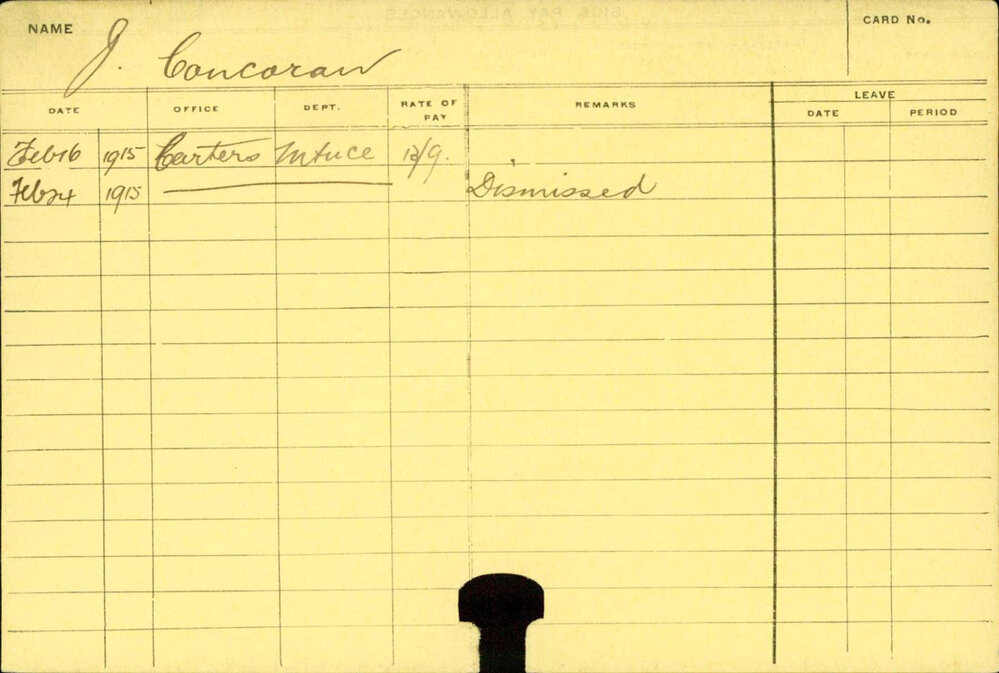 NAME J. Concoran CARD No.
DATE OFFICE DEPT. RATE OF PAY REMARKS LEAVE
DATE PERIOD
Feb 16 1915 Carters Mtnce 12/9.
Feb 24 1915 Dismissed